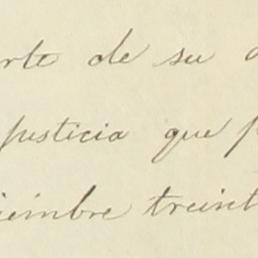 rte de su
justicia que p
iembre treint